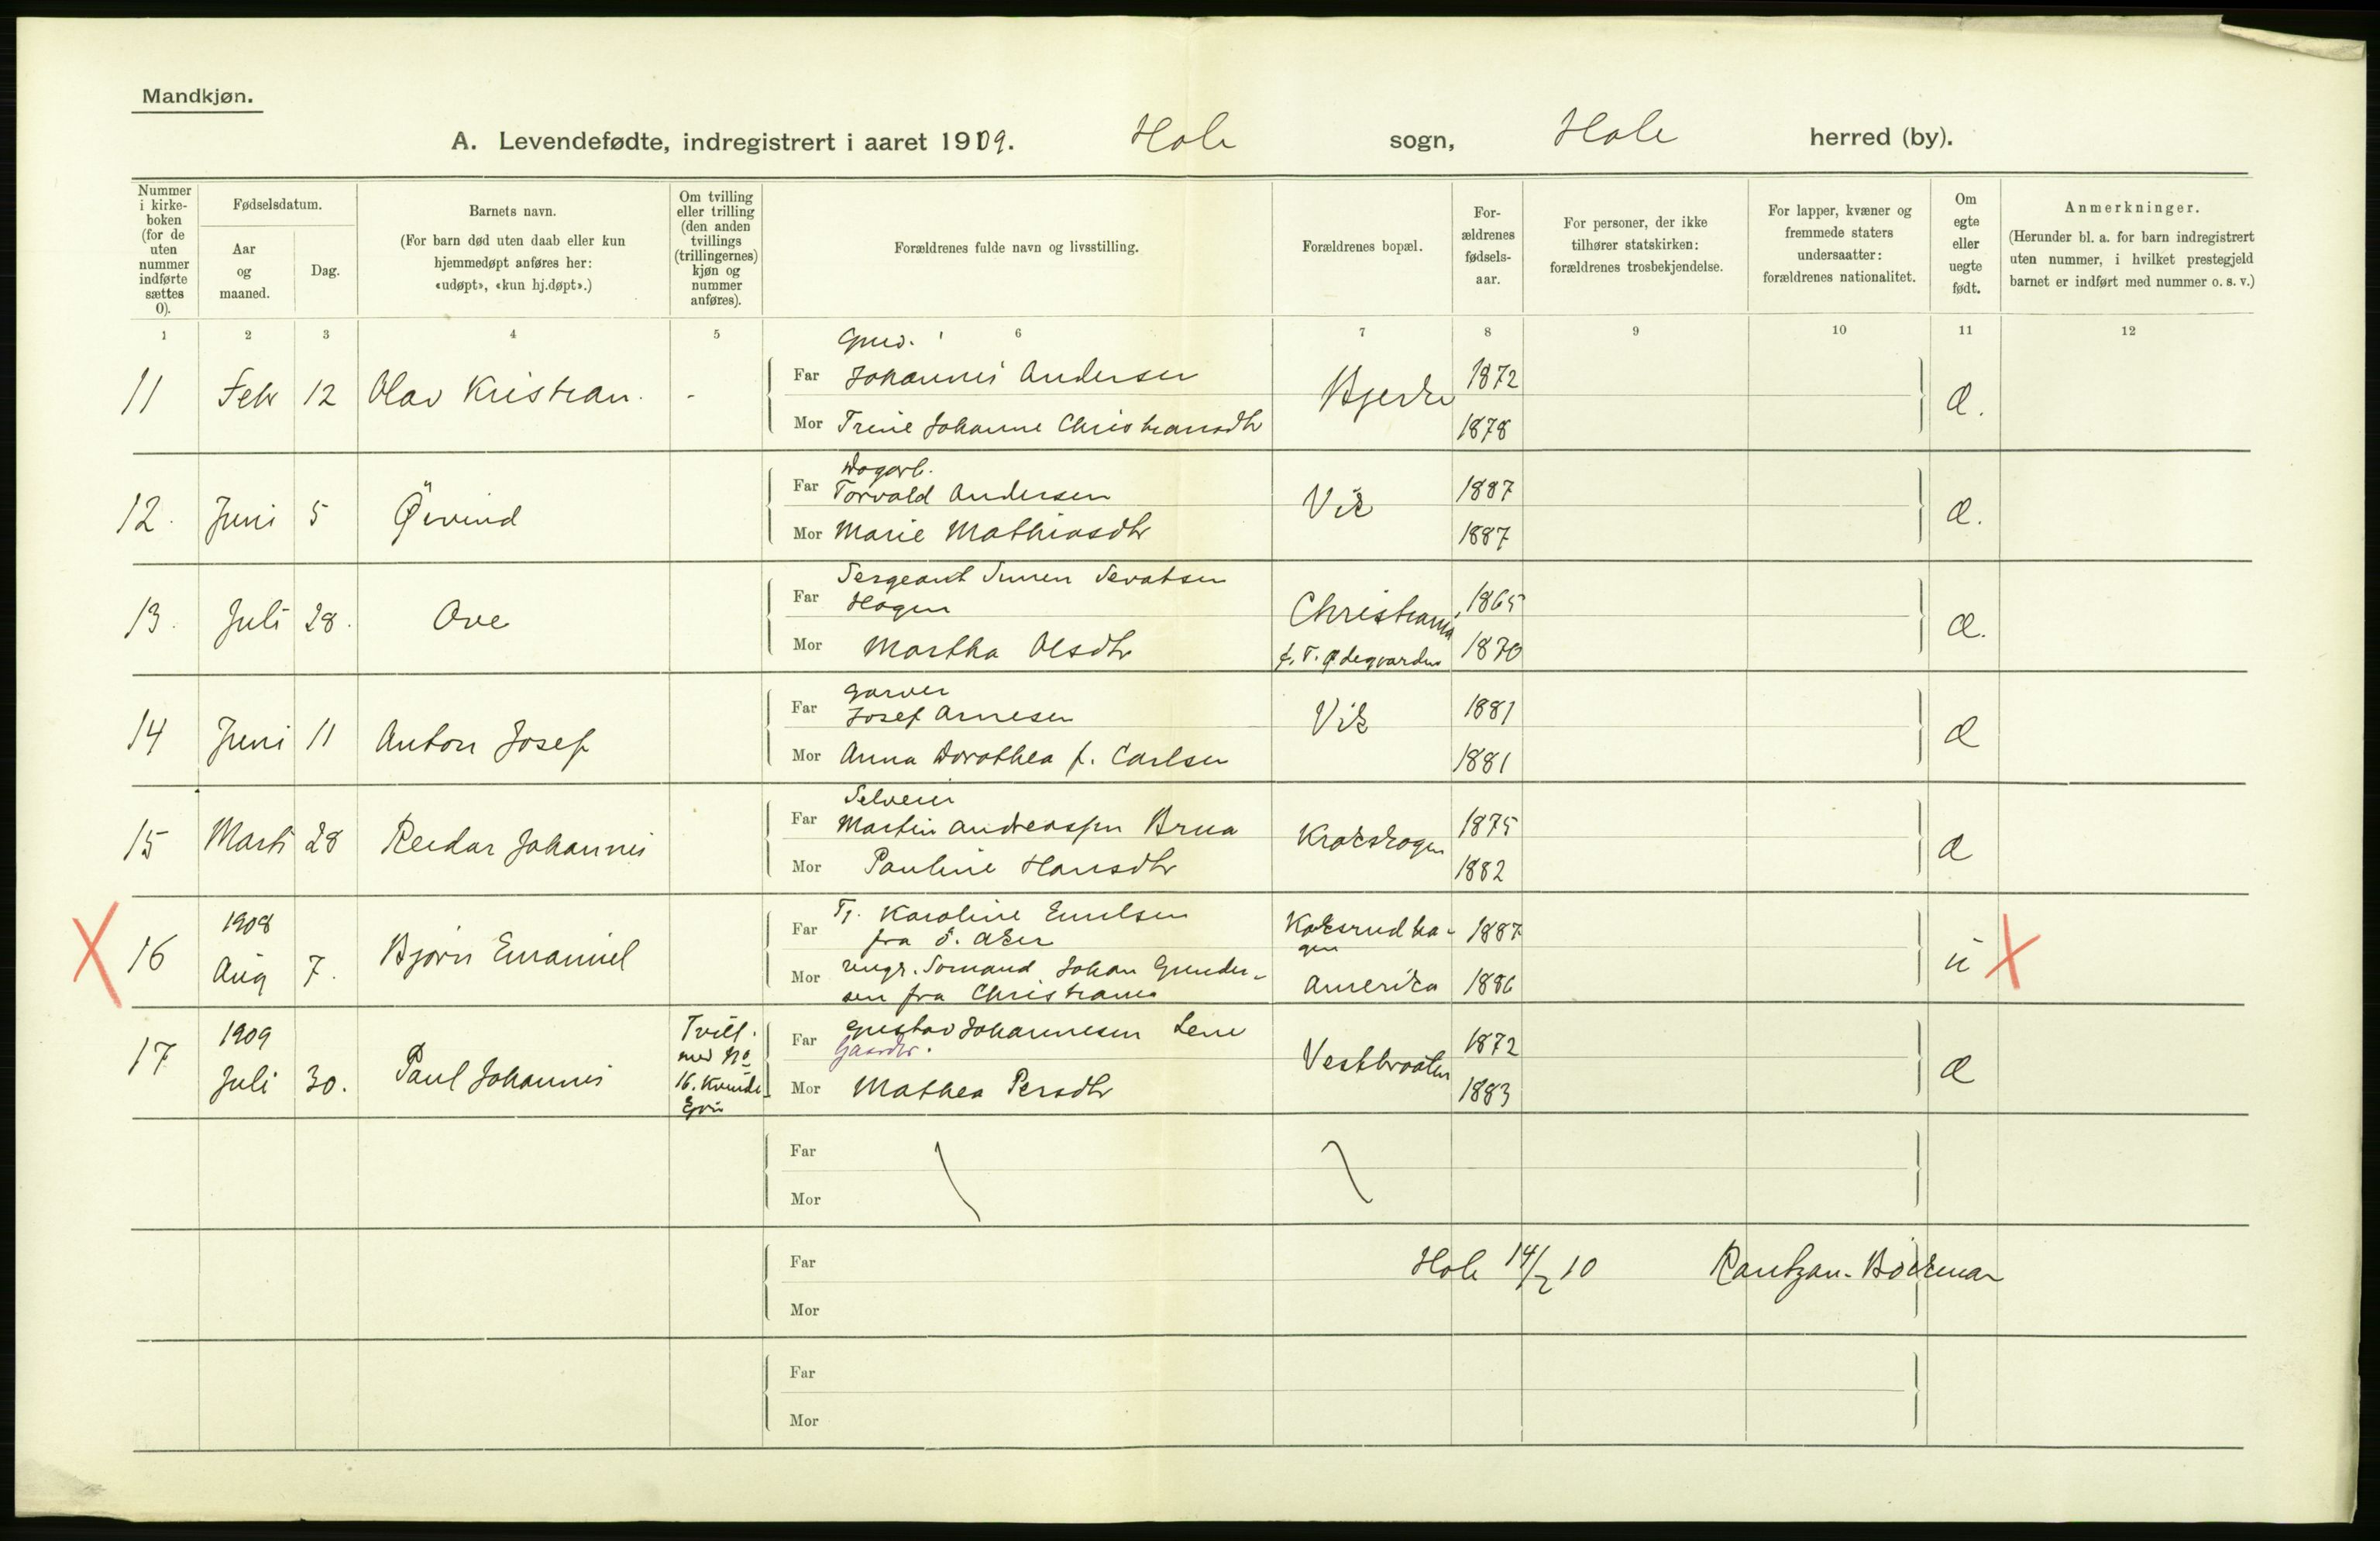 Mandkjøn.
A. Levendefødte, indregistrert i aaret 1909. Hole sogn, Hole herred (by).
Nummer i kirke-boken (for de uten nummer indførte sættes 0).
Fødselsdatum.
Aar og maaned.
Dag.
Barnets navn.
(For barn død uten daab eller kun hjemmedøpt anføres her: «udøpt», «kun hj.døpt».)
Om tvilling eller trilling (den anden tvillings (trillingernes) kjøn og nummer anføres).
Forældrenes fulde navn og livsstilling.
Forældrenes bopæl.
For-ældrenes fødsels-aar.
For personer, der ikke tilhører statskirken: forældrenes trosbekjendelse.
For lapper, kvæner og fremmede staters undersaatter: forældrenes nationalitet.
Om egte eller uegte født.
Anmerkninger.
(Herunder bl. a. for barn indregistrert uten nummer, i hvilket prestegjeld barnet er indført med nummer o. s. v.)
1 2 3 4 5 6 7 8 9 10 11 12
11 Febr 12 Olav Kristian. -
Far Johannes Andersen 1872
Mor Trine Johanne Christiansdtr 1878
Bjerke
12. Juni 5 Øivind
Dagarb.
Far Torvald Andersen 1887
Mor Marie Mathiasdtr 1887
Vik
æ.
13. Juli 28. Ove
Sergeant Simen Sevatsen
Far Hagen 1865
Mor Martha Olsdtr 1870
Christiania
f. T. Ødegaarden
æ.
14 Juni 11 Anton Josef
garver
Far Josef Arnesen 1881
Mor Anna Dorothea f. Carlsen 1881
Vik
æ
15 Marts 28 Reidar Johannes
Selveier
Far Martin Andreassen Brua 1875
Mor Pauline Hansdtr 1882
Krokskogen
æ
16 1908 Aug 7. Bjørn Emanuel
Far Tj. Karoline Emilsen
fra ö. Aker 1887
Mor ungk. Sømand Johan Gunder-
sen fra Christiania 1886
Amerika
u
17 1909 Juli 30. Paul Johannes
Tvill.
med No
16. Kvinde
Far Gustav Johannesen Lene 1872
Gaardbr.
Mor Mathea Persdtr 1883
Vestbraaten
æ
Far
Mor
Far
Mor
Hole 14/2 10 Rantzau-Böckman
Far
Mor